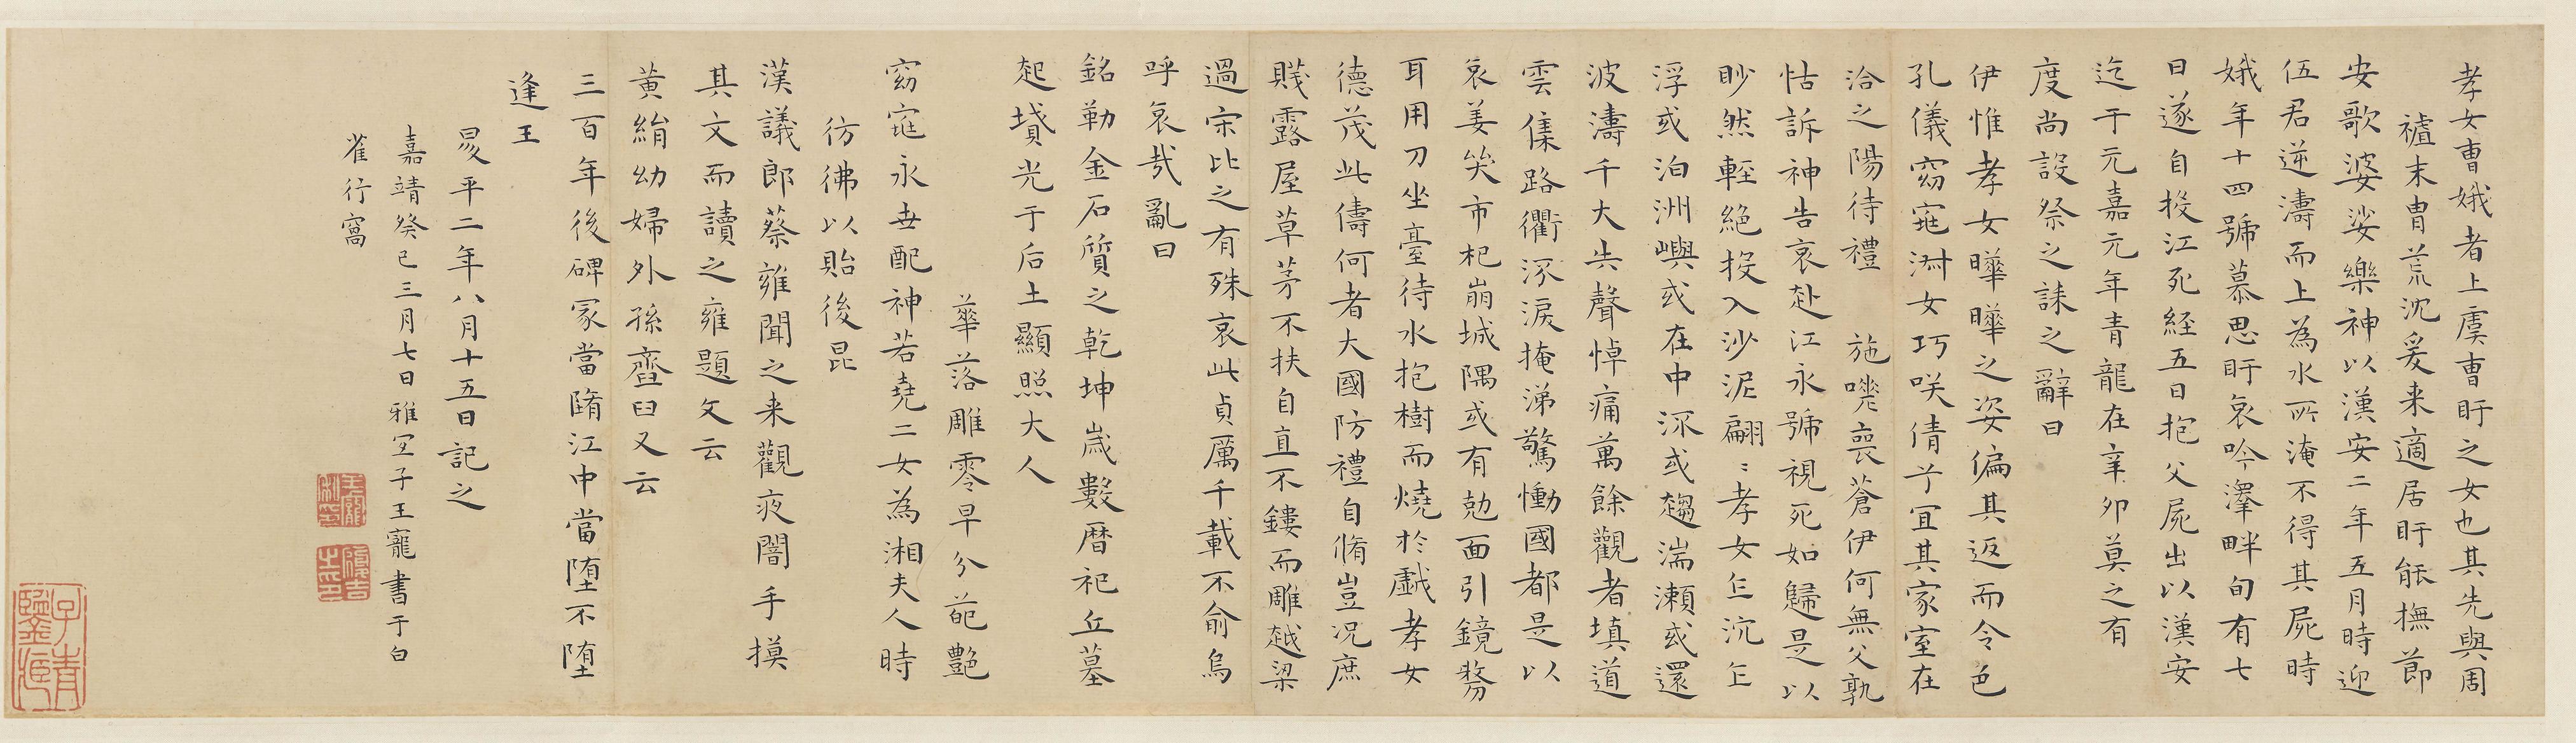 孝女曹娥者上虞曹盱之女也其先與周
禃末胄荒沈爰来適居盱能撫節
安歌婆娑樂神以漢安二年五月時迎
伍君逆濤而上為水所淹不得其屍時
娥年十四號慕思盱哀吟澤畔旬有七
日遂自投江死經五日抱父屍出以漢安
迄于元嘉元年青龍在辛卯莫之有
度尚設祭之誄之辭曰
伊惟孝女曄曄之姿偏其返而令色
孔儀窈窕淑女巧咲倩兮宜其家室在
洽之陽待禮施嗟喪蒼伊何無父孰
怙訴神告哀赴江永號視死如歸是以
眇然輕絕投入沙泥翩〻孝女乍沉乍
浮或泊洲嶼或在中流或趨湍瀨或還
波濤千夫失聲悼痛萬餘觀者填道
雲集路衢流淚掩涕驚慟國都是以
哀姜哭市杞崩城隅或有剋面引鏡剺
耳用刀坐臺待水抱樹而燒於戲孝女
德茂此儔何者大國防禮自脩豈況庶
賤露屋草茅不扶自直不鏤而雕越梁
過宋比之有殊哀此貞厲千載不渝烏
呼哀哉亂曰
銘勒金石質之乾坤歲數曆祀丘墓
起墳光于后土顯照夫人
華落雕零早分葩艷
窈窕永世配神若堯二女為湘夫人時
彷彿以貽後昆
漢議郎蔡雍聞之来觀夜闇手摸
其文而讀之雍題文云
黃絹幼婦外孫齏臼又云
三百年後碑冢當墮江中當墮不墮
逢王
昪平二年八月十五日記之
嘉靖癸巳三月七日雅宜子王寵書于白
雀行窩
王履吉印
子青鑒藏